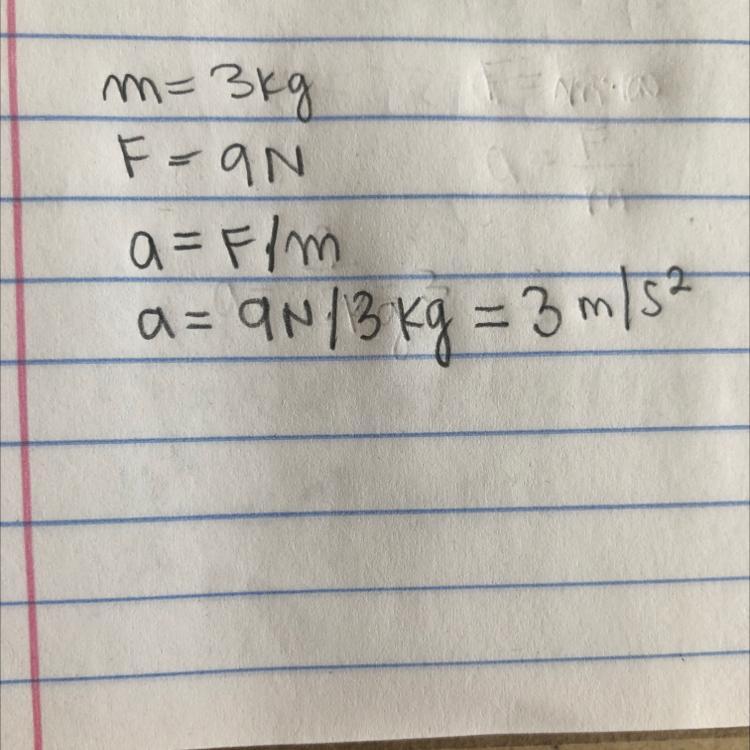 m = 3kg
F = 9N
a = F/m
a = 9N/3kg = 3 m/s²